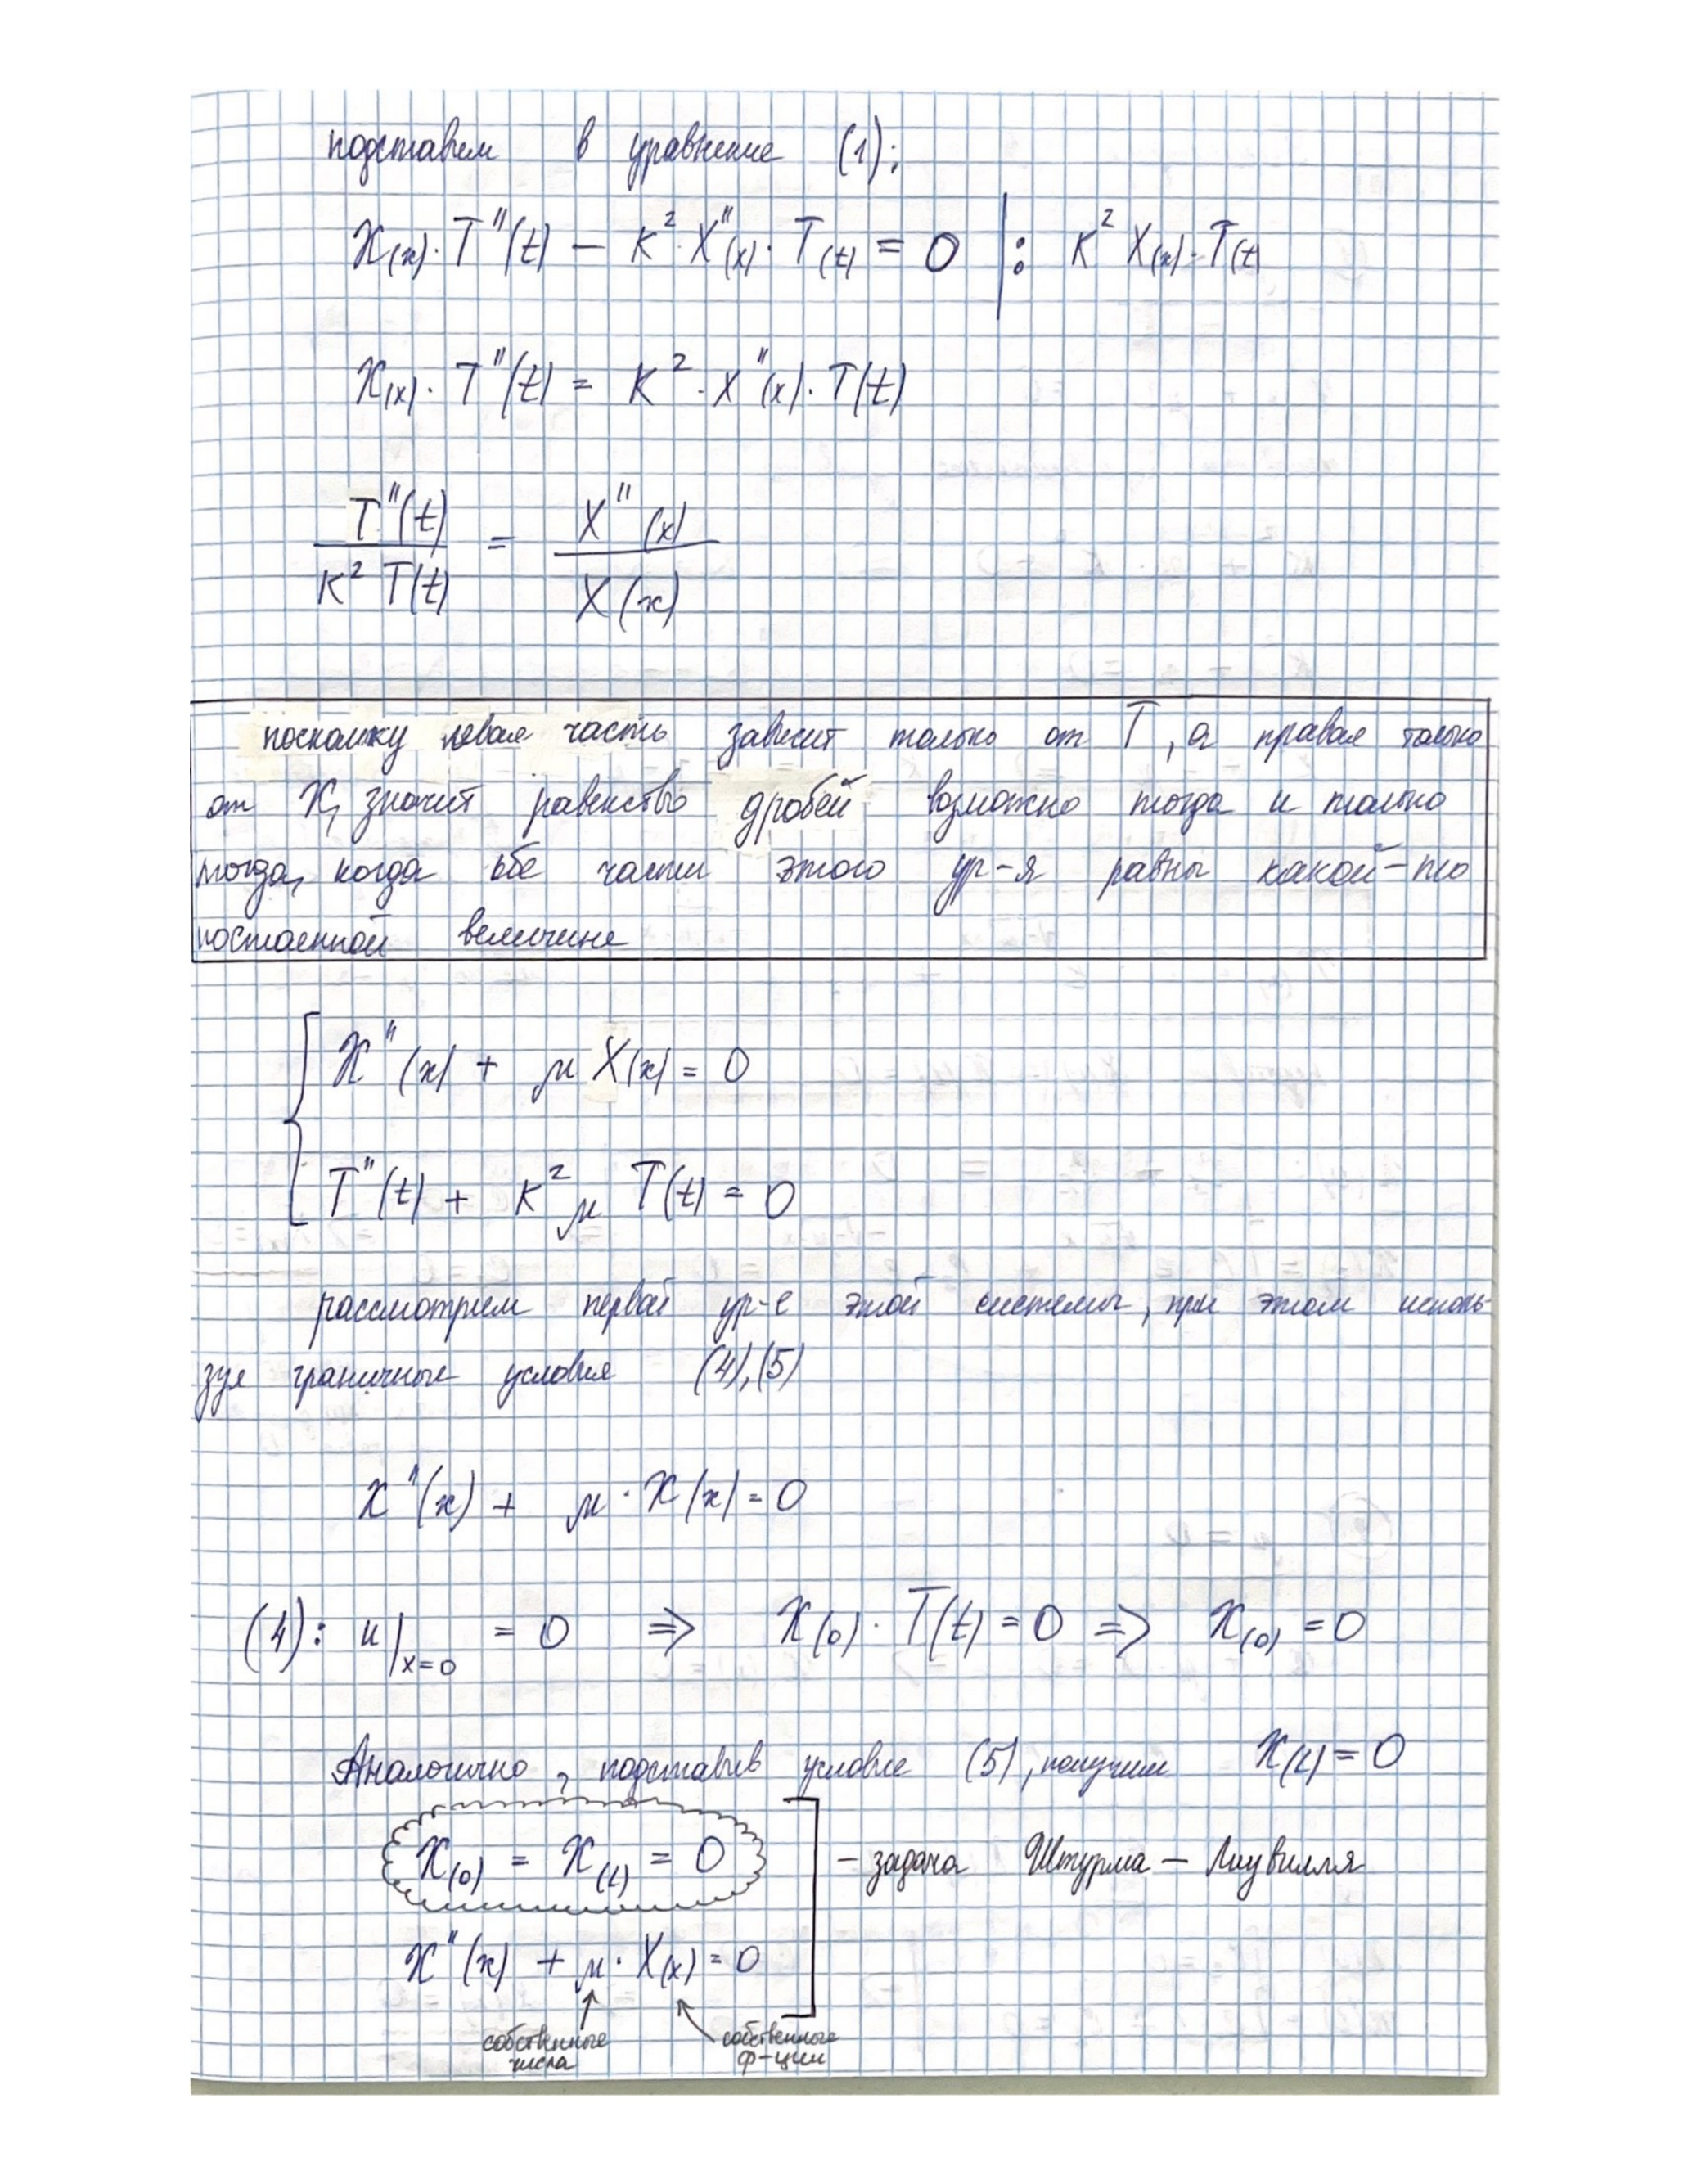 подставим в уравнение (1):
X(x)·T''(t) − K²·X''(x)·T(t) = 0 | : K² X(x)·T(t)
X(x)·T''(t) = K²·X''(x)·T(t)
T''(t) / K² T(t) = X''(x) / X(x)
поскольку левая часть зависит только от T, а правая только
от X, значит равенство дробей возможно тогда и только
тогда, когда обе части этого ур-я равны какой-то
постоенной величине
X''(x) + μ X(x) = 0
T''(t) + K² μ T(t) = 0
рассмотрим первой ур-е этой системы, при этом исполь-
зуя граничные условия (4), (5)
X''(x) + μ·X(x) = 0
(4): u|x=0 = 0 => X(0)·T(t) = 0 => X(0) = 0
Аналогично, подставив условие (5), получим X(L) = 0
X(0) = X(L) = 0 – задача Штурма – Лиувилля
X''(x) + μ·X(x) = 0
собственные числа
собственные ф-ции